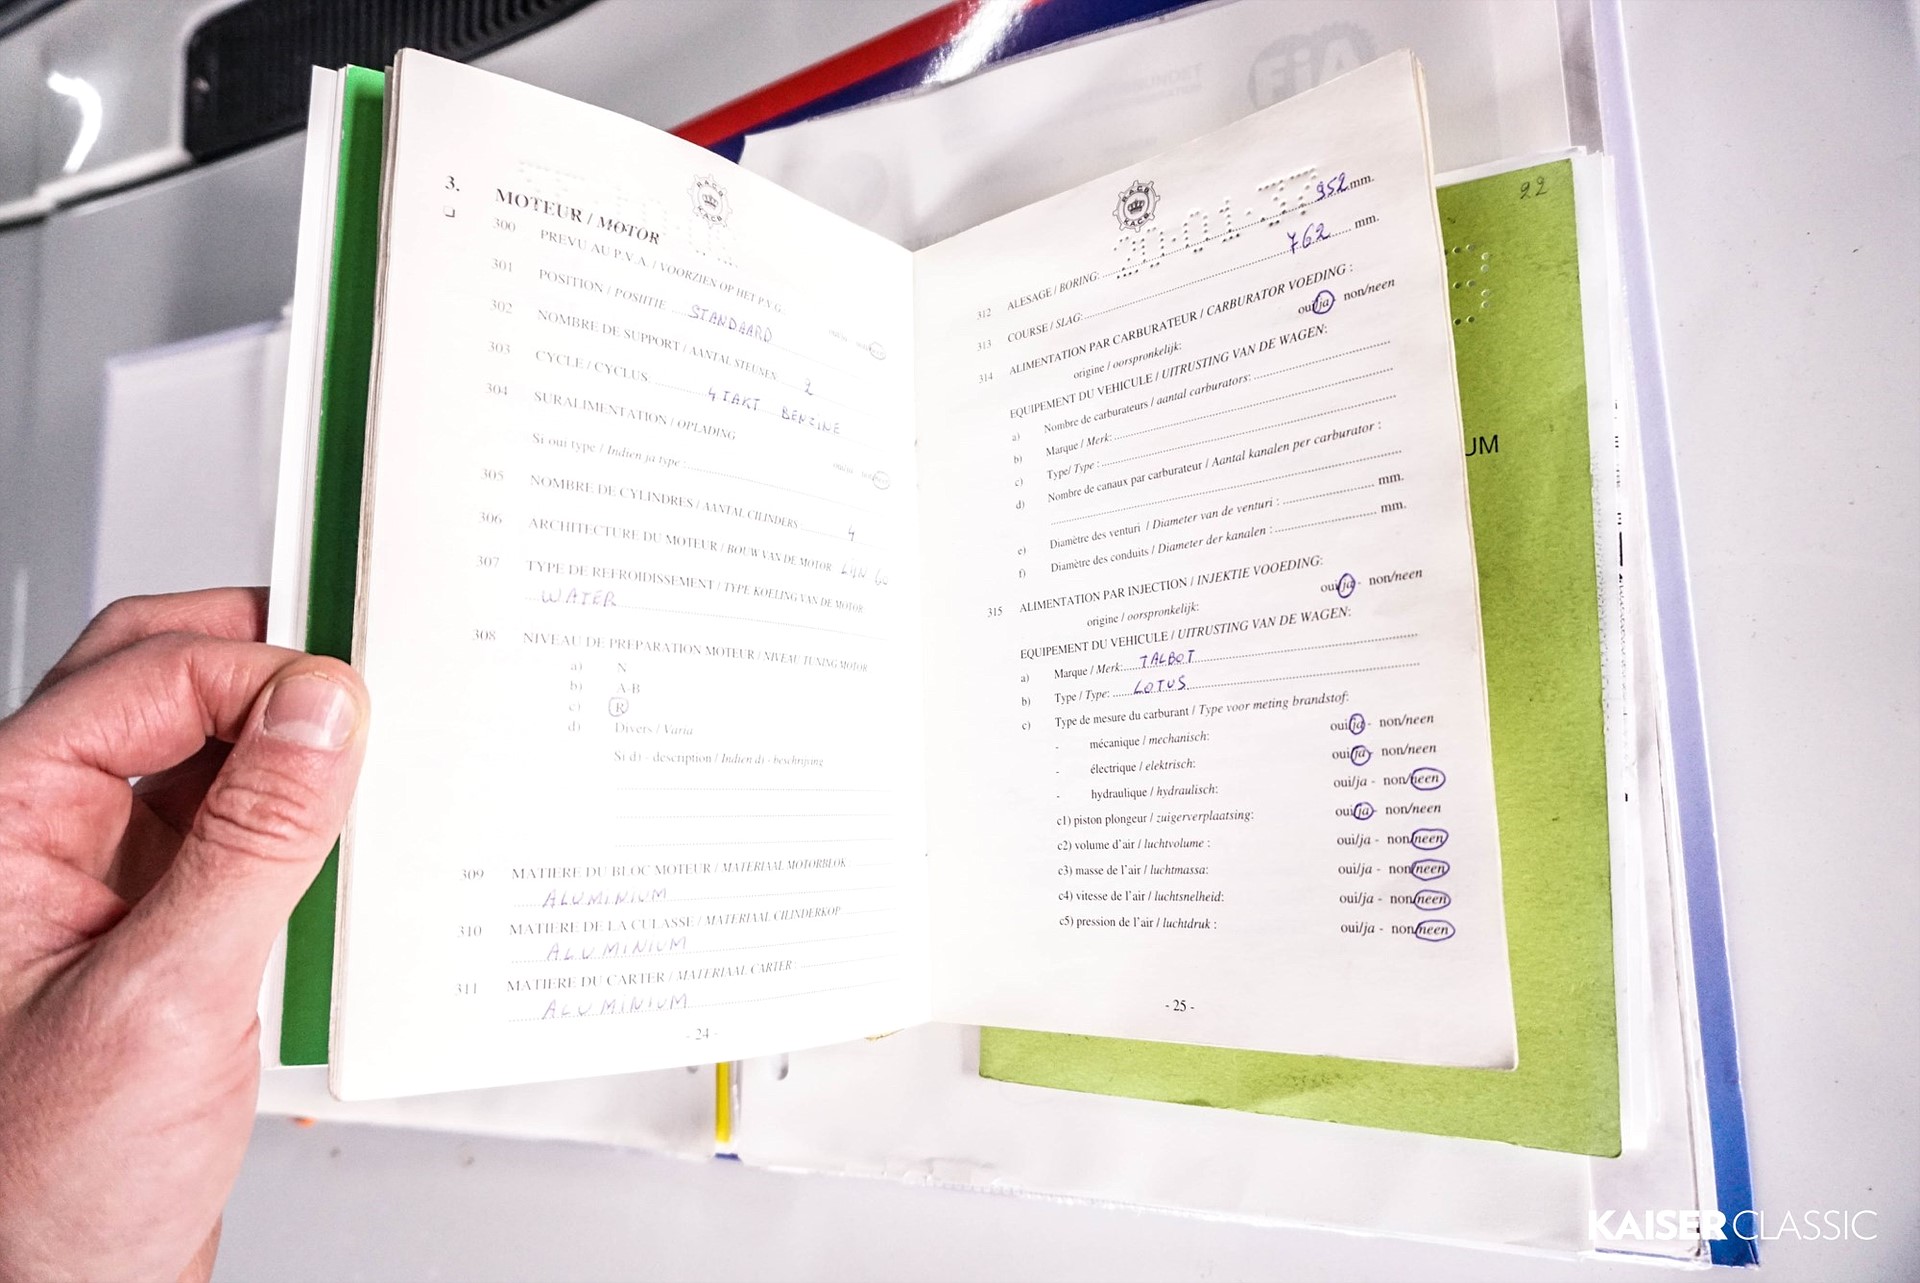 RACB
KACB
3. MOTEUR / MOTOR
300 PREVU AU P.V.A. / VOORZIEN OP HET P.V.G.
301 POSITION / POSITIE STANDAARD
302 NOMBRE DE SUPPORT / AANTAL STEUNEN 2
303 CYCLE / CYCLUS 4 TAKT BENZINE
304 SURALIMENTATION / OPLADING
Si oui type / Indien ja type :
305 NOMBRE DE CYLINDRES / AANTAL CILINDERS 4
306 ARCHITECTURE DU MOTEUR / BOUW VAN DE MOTOR LIJN
307 TYPE DE REFROIDISSEMENT / TYPE KOELING VAN DE MOTOR
WATER
308 NIVEAU DE PREPARATION MOTEUR / NIVEAU TUNING MOTOR
a) N
b) A-B
c) R
d) Divers / Varia
Si d) - description / Indien d) - beschrijving
309 MATIERE DU BLOC MOTEUR / MATERIAAL MOTORBLOK
ALUMINIUM
310 MATIERE DE LA CULASSE / MATERIAAL CILINDERKOP
ALUMINIUM
311 MATIERE DU CARTER / MATERIAAL CARTER :
ALUMINIUM
- 24 -
RACB
KACB
312 ALESAGE / BORING: 952 mm.
313 COURSE / SLAG: 762 mm.
314 ALIMENTATION PAR CARBURATEUR / CARBURATOR VOEDING :
origine / oorspronkelijk: oui/ja - non/neen
EQUIPEMENT DU VEHICULE / UITRUSTING VAN DE WAGEN:
a) Nombre de carburateurs / aantal carburators:
b) Marque / Merk:
c) Type/ Type :
d) Nombre de canaux par carburateur / Aantal kanalen per carburator :
e) Diamètre des venturi / Diameter van de venturi : mm.
f) Diamètre des conduits / Diameter der kanalen : mm.
315 ALIMENTATION PAR INJECTION / INJEKTIE VOOEDING:
origine / oorspronkelijk: oui/ja - non/neen
EQUIPEMENT DU VEHICULE / UITRUSTING VAN DE WAGEN:
a) Marque / Merk: TALBOT
b) Type / Type: LOTUS
c) Type de mesure du carburant / Type voor meting brandstof:
- mécanique / mechanisch: oui/ja - non/neen
- électrique / elektrisch: oui/ja - non/neen
- hydraulique / hydraulisch: oui/ja - non/neen
c1) piston plongeur / zuigerverplaatsing: oui/ja - non/neen
c2) volume d'air / luchtvolume : oui/ja - non/neen
c3) masse de l'air / luchtmassa: oui/ja - non/neen
c4) vitesse de l'air / luchtsnelheid: oui/ja - non/neen
c5) pression de l'air / luchtdruk : oui/ja - non/neen
- 25 -
22
UM
KAISER CLASSIC